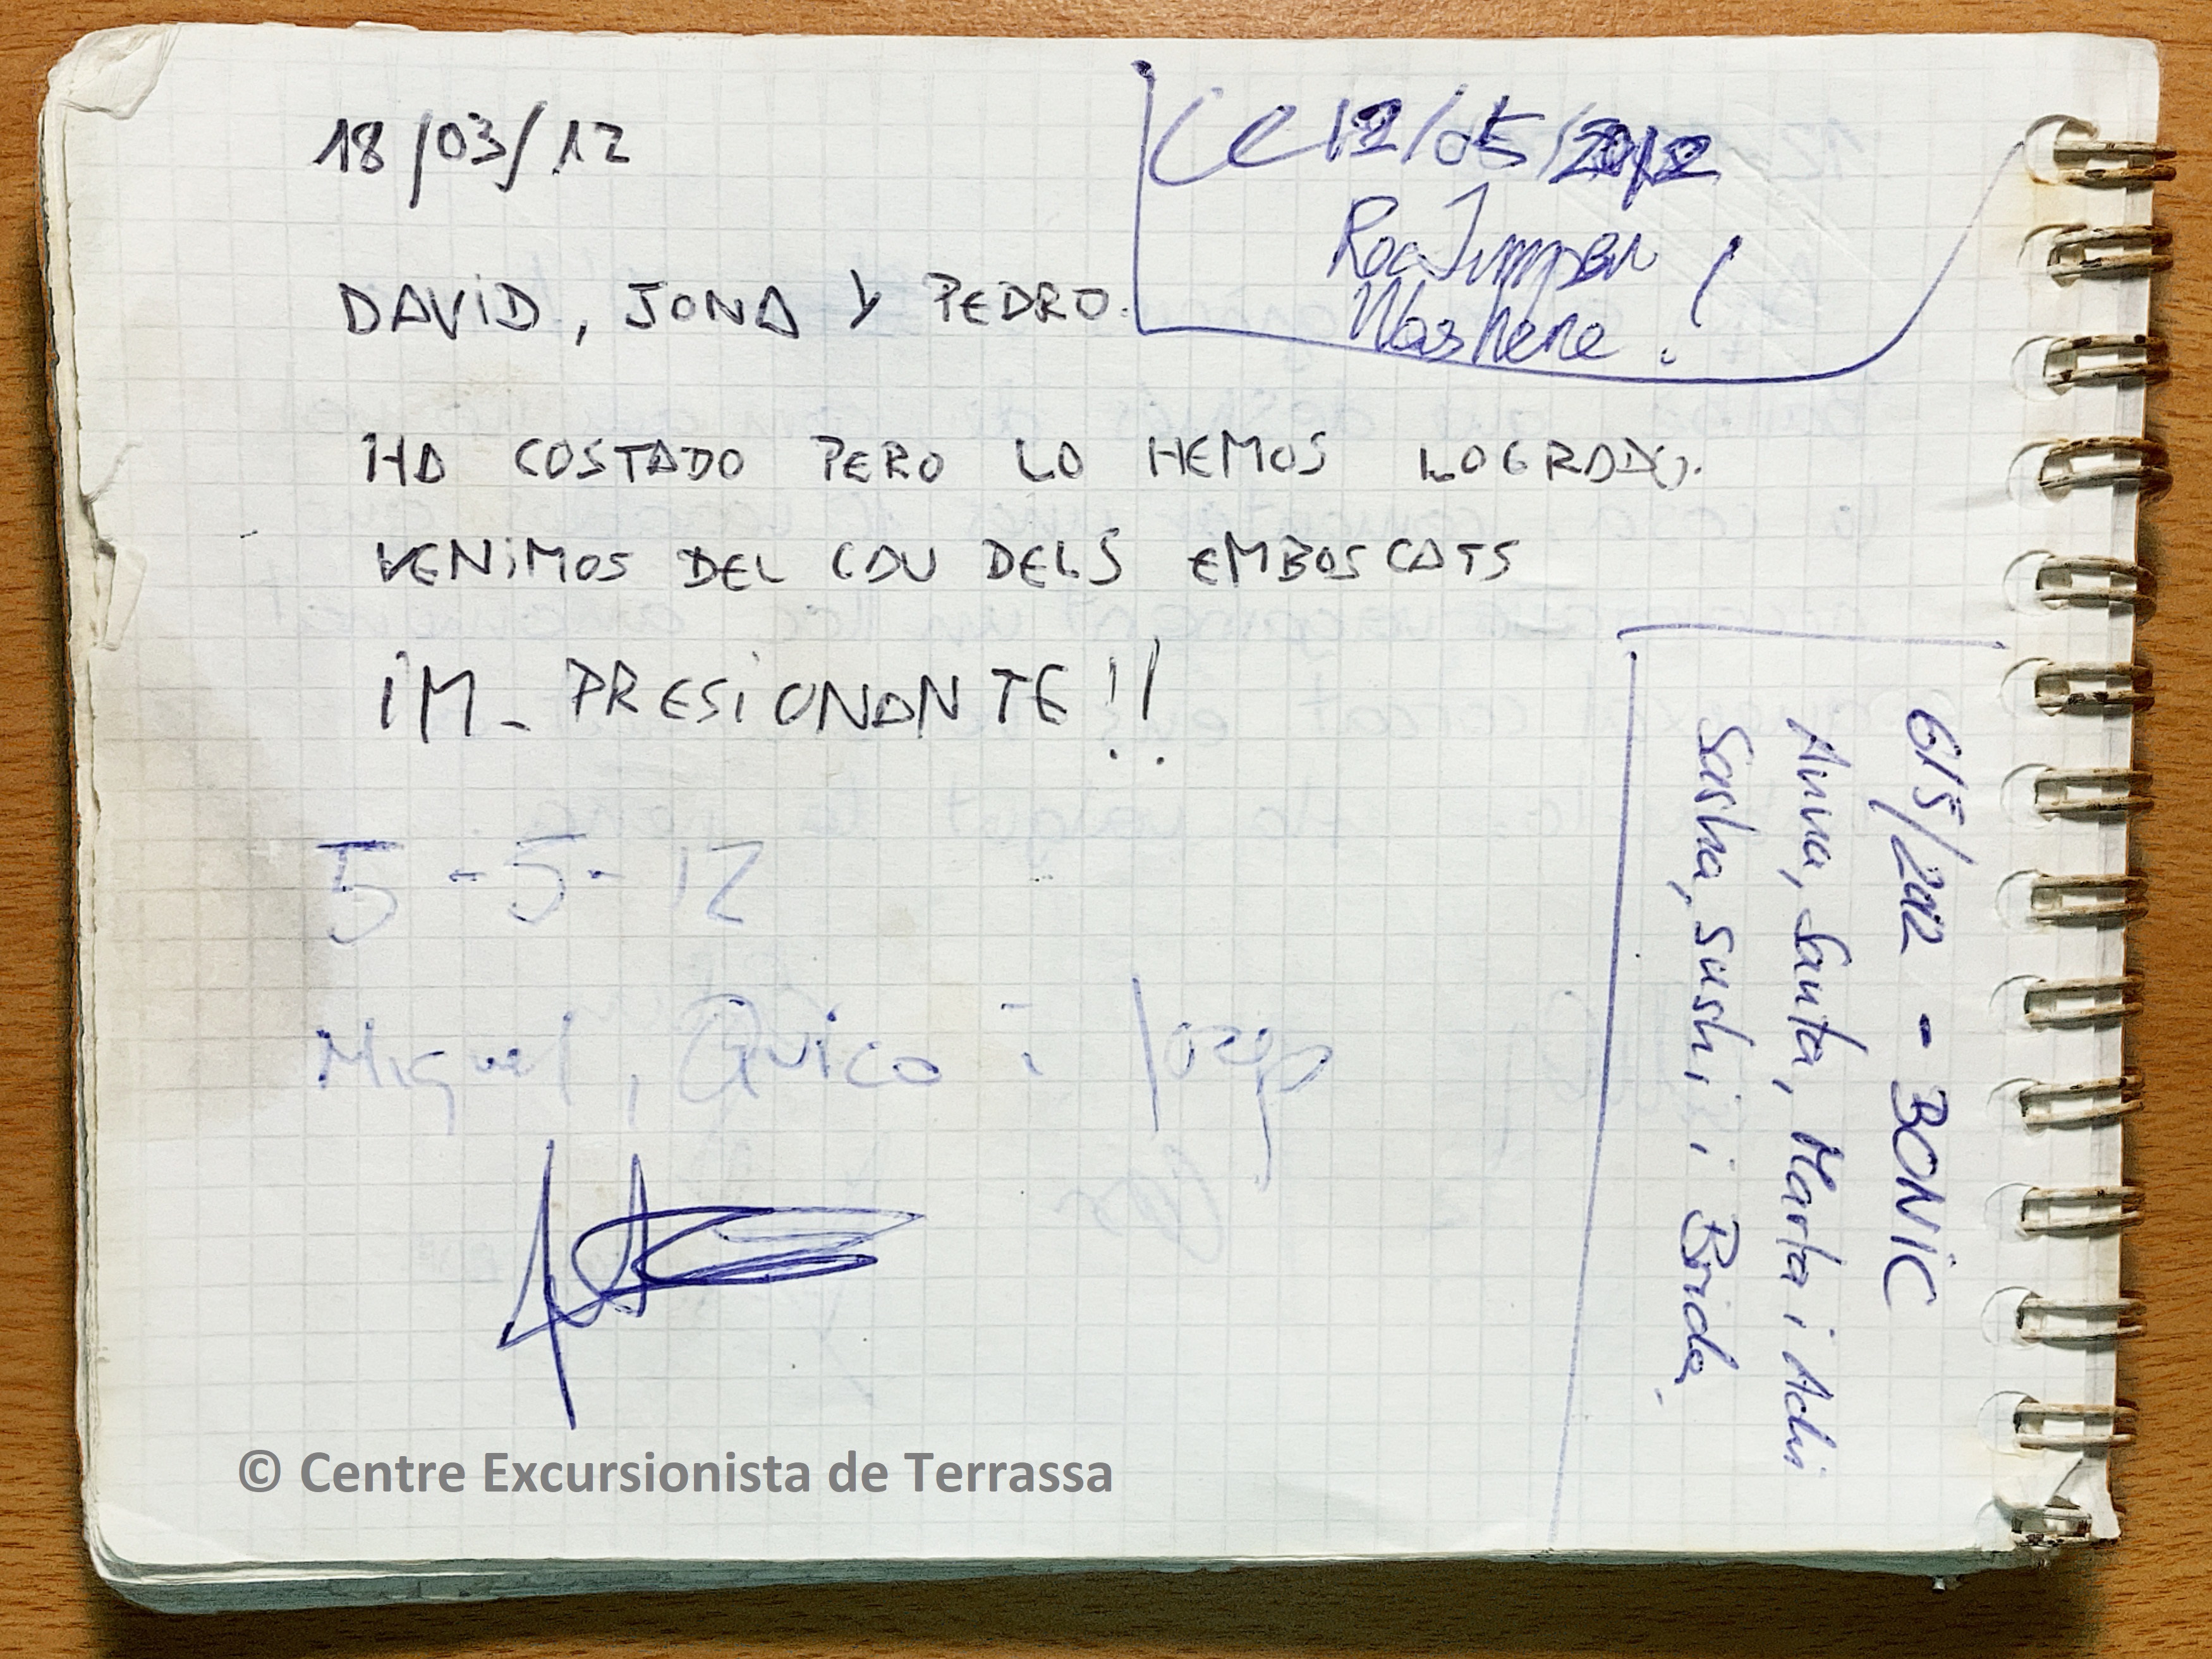 18/03/12
DAVID, JONA Y PEDRO.
HA COSTADO PERO LO HEMOS LOGRADO.
VENIMOS DEL CAU DELS EMBOSCATS
IM-PRESIONANTE!!
12/05/2012
RocJumper
Was here!
5-5-12
Miquel, Quico i Josep
6/5/2012 - BONIC
Anna, Santa, Marta i Adri
Sasha, Sushi i Brida.
© Centre Excursionista de Terrassa